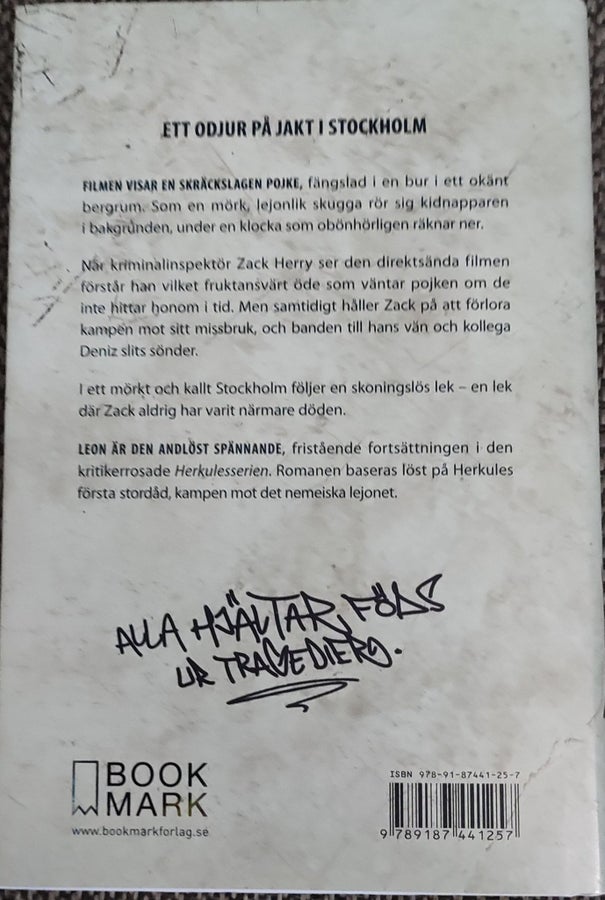 ETT ODJUR PÅ JAKT I STOCKHOLM
FILMEN VISAR EN SKRÄCKSLAGEN POJKE, fängslad i en bur i ett okänt
bergrum. Som en mörk, lejonlik skugga rör sig kidnapparen
i bakgrunden, under en klocka som obönhörligen räknar ner.
När kriminalinspektör Zack Herry ser den direktsända filmen
förstår han vilket fruktansvärt öde som väntar pojken om de
inte hittar honom i tid. Men samtidigt håller Zack på att förlora
kampen mot sitt missbruk, och banden till hans vän och kollega
Deniz slits sönder.
I ett mörkt och kallt Stockholm följer en skoningslös lek – en lek
där Zack aldrig har varit närmare döden.
LEON ÄR DEN ANDLÖST SPÄNNANDE, fristående fortsättningen i den
kritikerrosade Herkulesserien. Romanen baseras löst på Herkules
första stordåd, kampen mot det nemeiska lejonet.
ALLA HJÄLTAR FÖDS
UR TRAGEDIER.
BOOK
MARK
www.bookmarkforlag.se
ISBN 978-91-87441-25-7
9 789187 441257